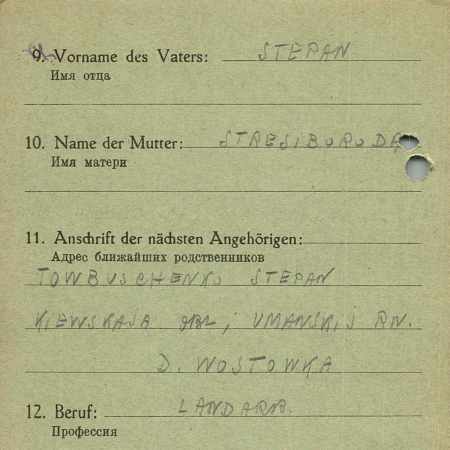 9. Vorname des Vaters: STEPAN
Имя отца
10. Name der Mutter: STRESIBORODA
Имя матери
11. Anschrift der nächsten Angehörigen:
Адрес ближайших родственников
TOWBUSCHENKO STEPAN
KIEWSKAJA OBL, UMANSKIJ RN.
D. WOSTOWKA
12. Beruf: LANDARB.
Профессия